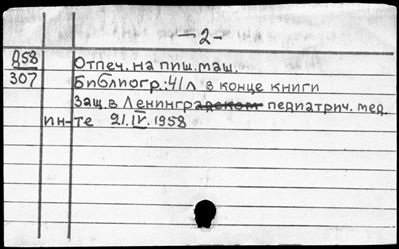 — 2 —
Д58
Отпеч. на пиш. маш.
307
Библиогр.: 41 л в конце книги
Защ. в Ленинградском педиатрич. мед.
ин-те 21.IV.1958